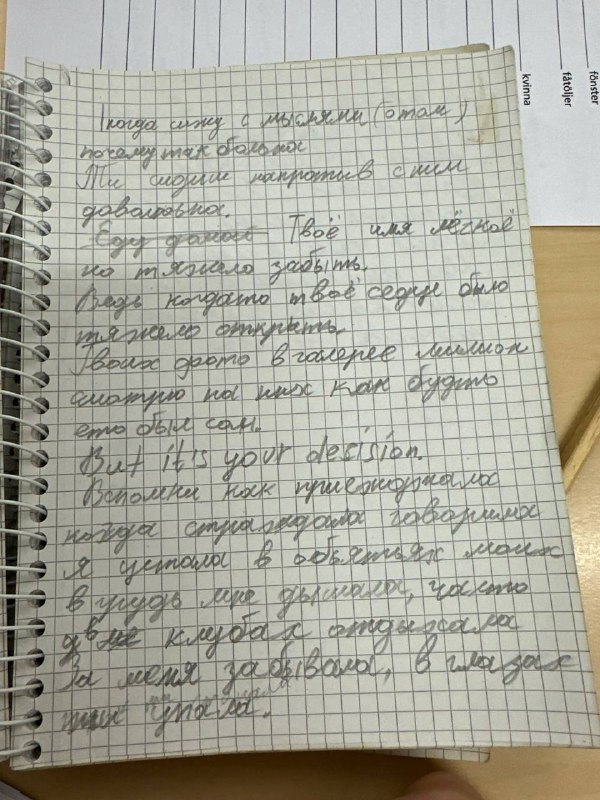 fönster
fåtöljer
kvinna
когда сижу с мыслями (о том)
почему так больно
Ти сидиш напротив с ним
довольна.
Еду домой Твоё имя лёгкое
но тяжело забыть.
Ведь когдато твоё седце было
тяжело открыть.
Твоих фото в галерее миллион
смотрю на них как будто
ето был сон.
But it's your desision.
Вспомни как приезжала
когда страдала говорила
я устала в обьятьях моих
в грудь мне дышала, часто
в клубах отдыхала
За меня забывала, в глазах
упала.